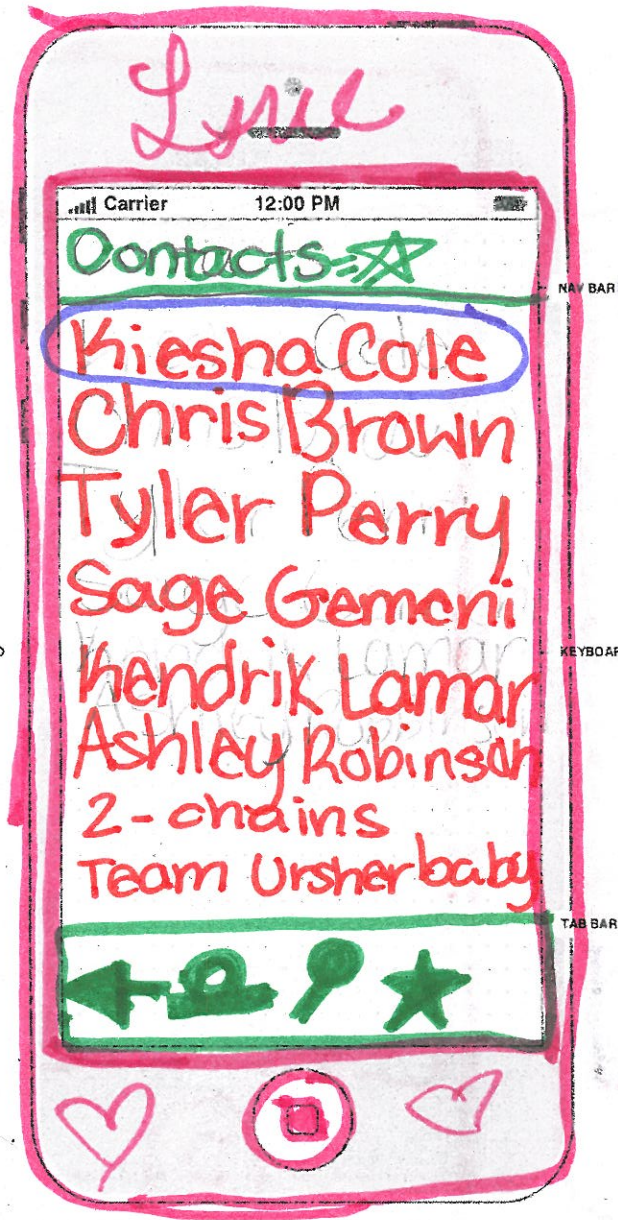 Carrier 12:00 PM
Contacts
NAV BAR
Kiesha Cole
Chris Brown
Tyler Perry
Sage Gemeni
Kendrik Lamar
KEYBOAR
Ashley Robinson
2-chains
Team Ursher baby
TAB BAR